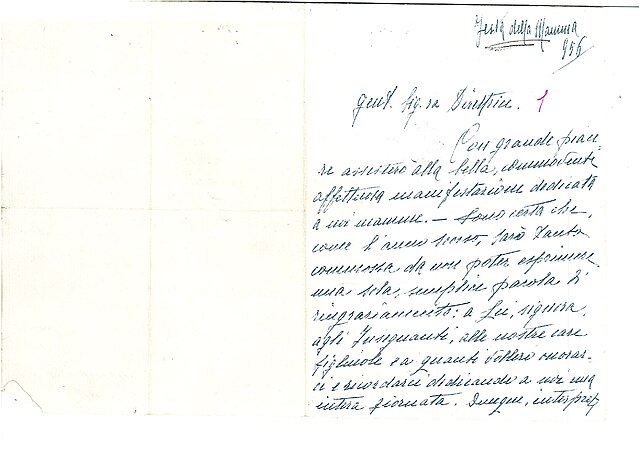 Festa della Mamma
956
Gent. Sig.ra Direttrice. 1
Con grande piace=
re assisterò alla bella, commovente
affettuosa manifestazione dedicata
a noi mamme. — Sono certa che,
come l'anno scorso, sarò tanto
commossa da non poter esprimere
una sola, semplice parola di
ringraziamento: a Lei, signora,
agli Insegnanti, alle nostre care
figliuole e a quanti vollero onorar-
ci e ricordarci dedicando a noi una
intera giornata. Dunque, interpret